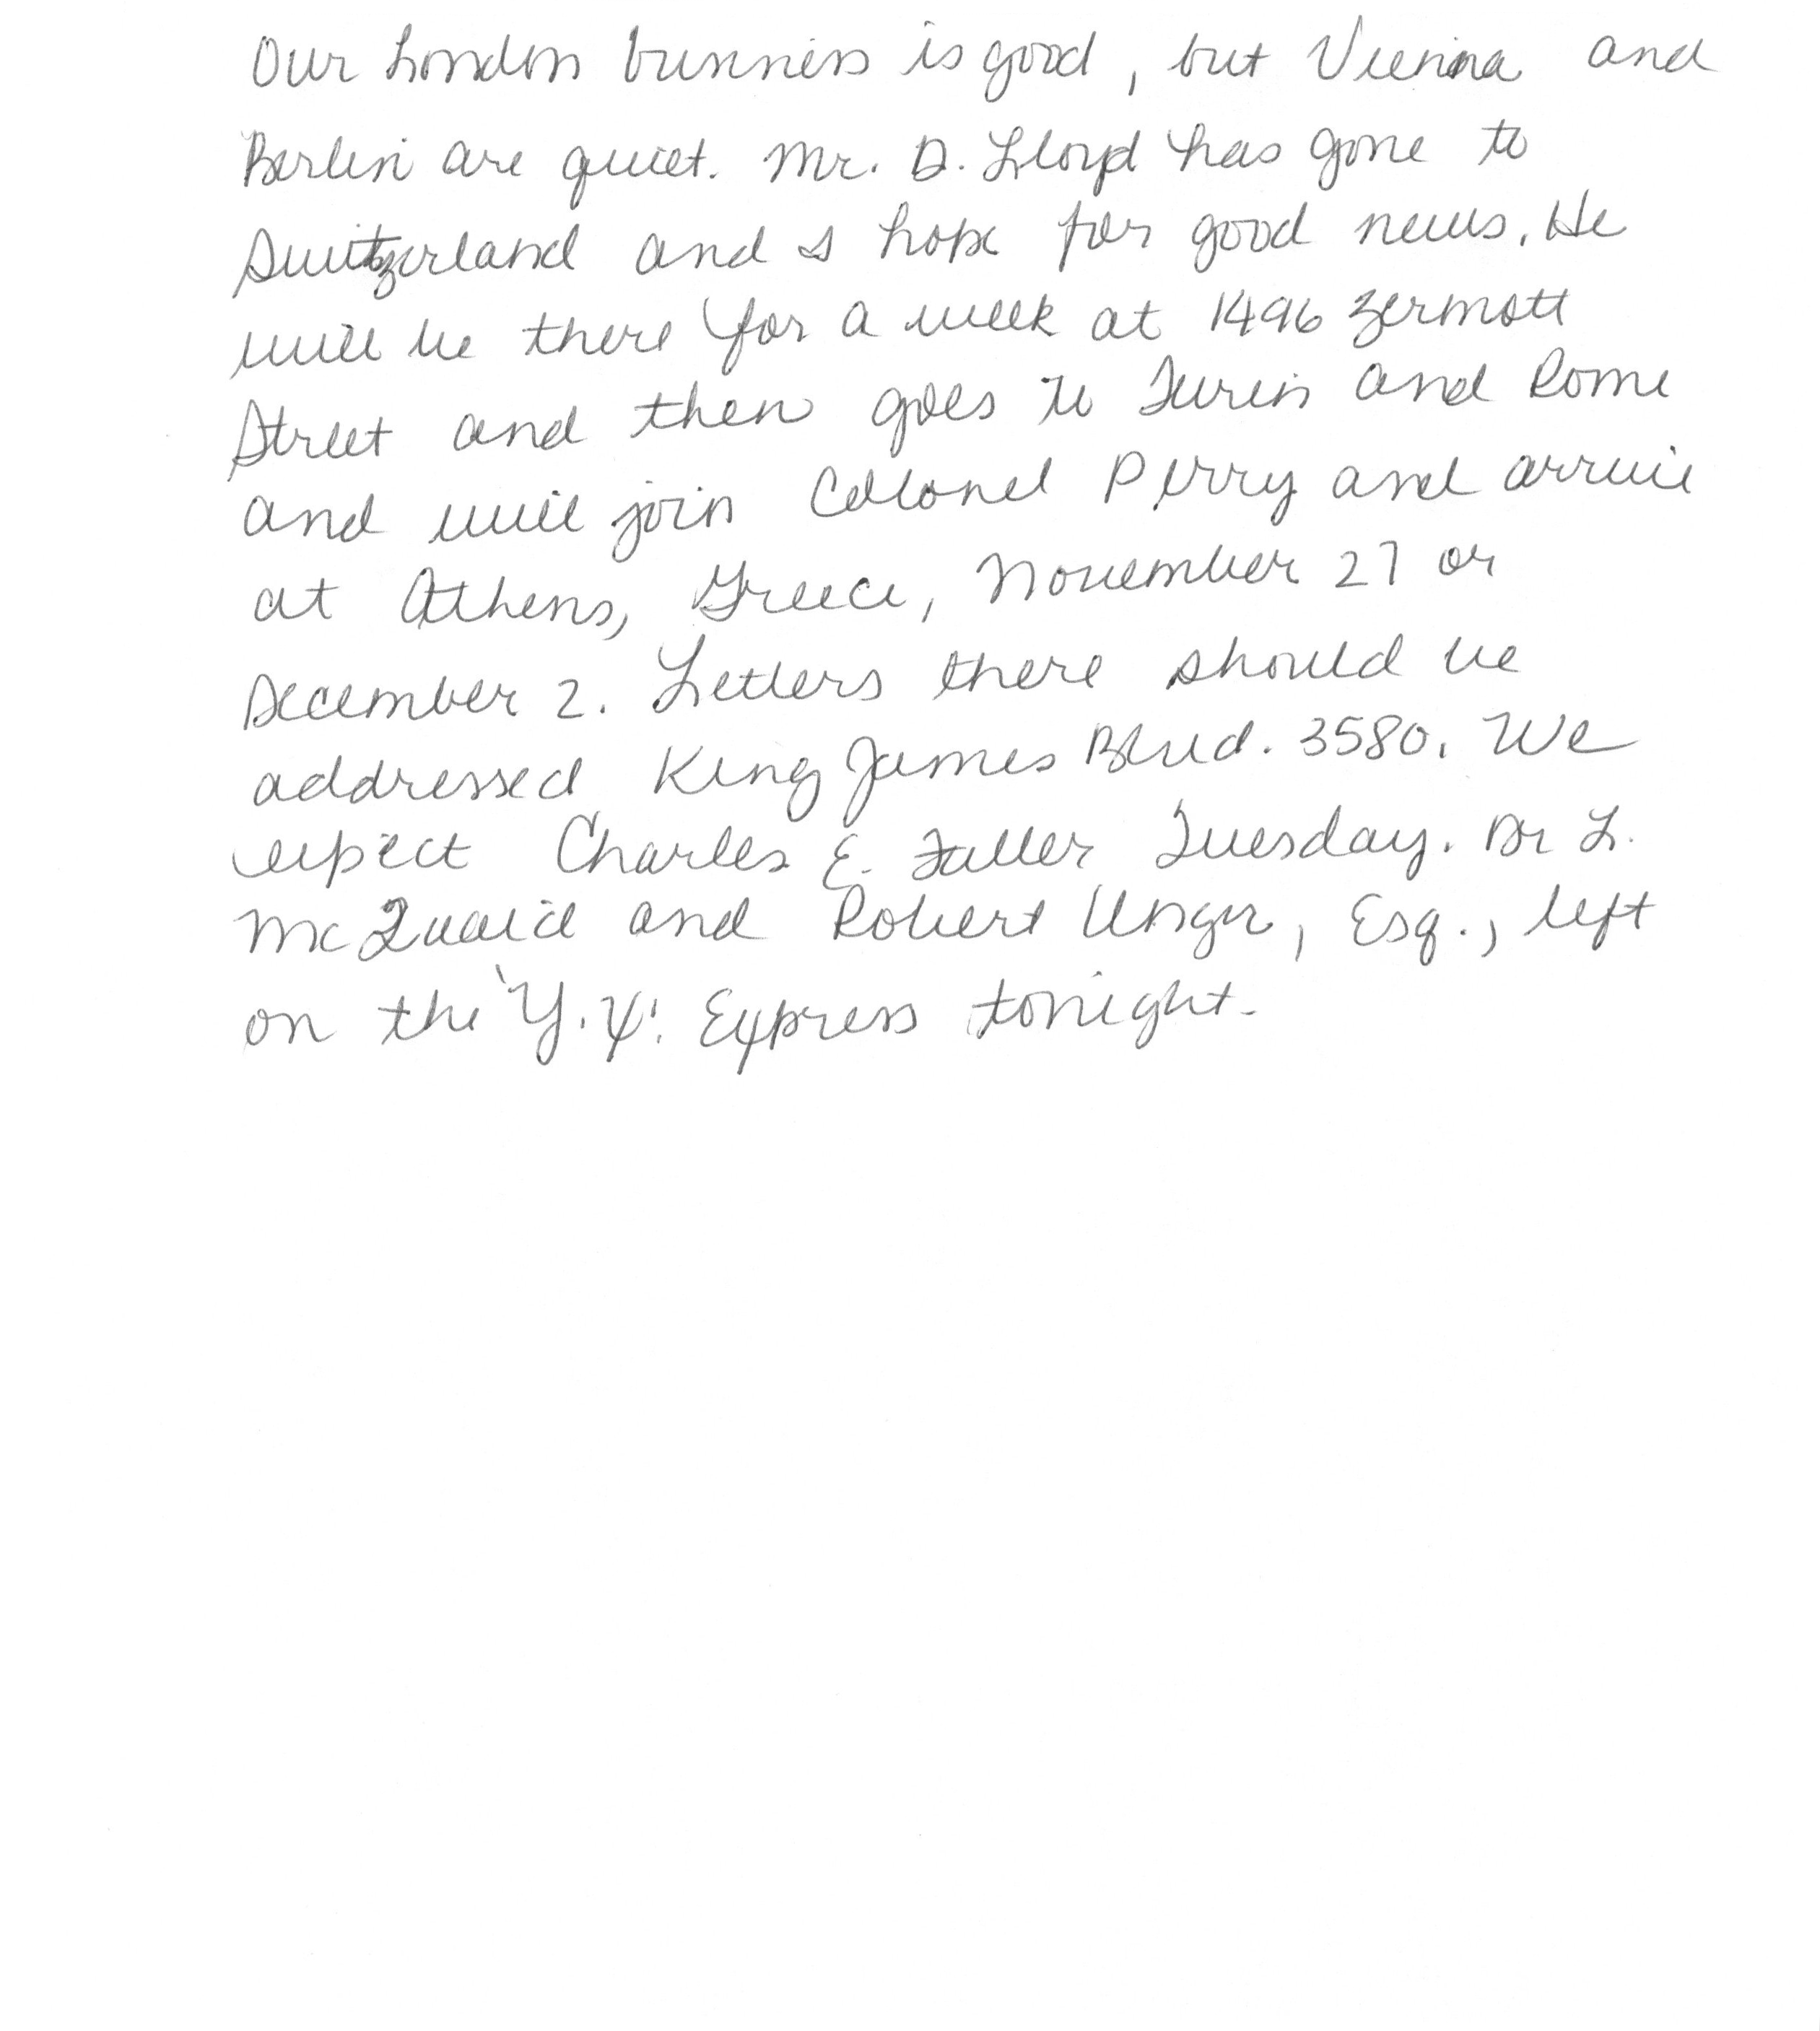 Our London business is good, but Vienna and
Berlin are quiet. Mr. D. Lloyd has gone to
Switzerland and I hope for good news. He
will be there for a week at 1496 Zermott
Street and then goes to Turin and Rome
and will join Colonel Perry and arrive
at Athens, Greece, November 27 or
December 2. Letters there should be
addressed King James Blvd. 3580. We
expect Charles E. Fuller Tuesday. Dr L.
McQuaid and Robert Unger, Esq., left
on the "Y.X." Express tonight.